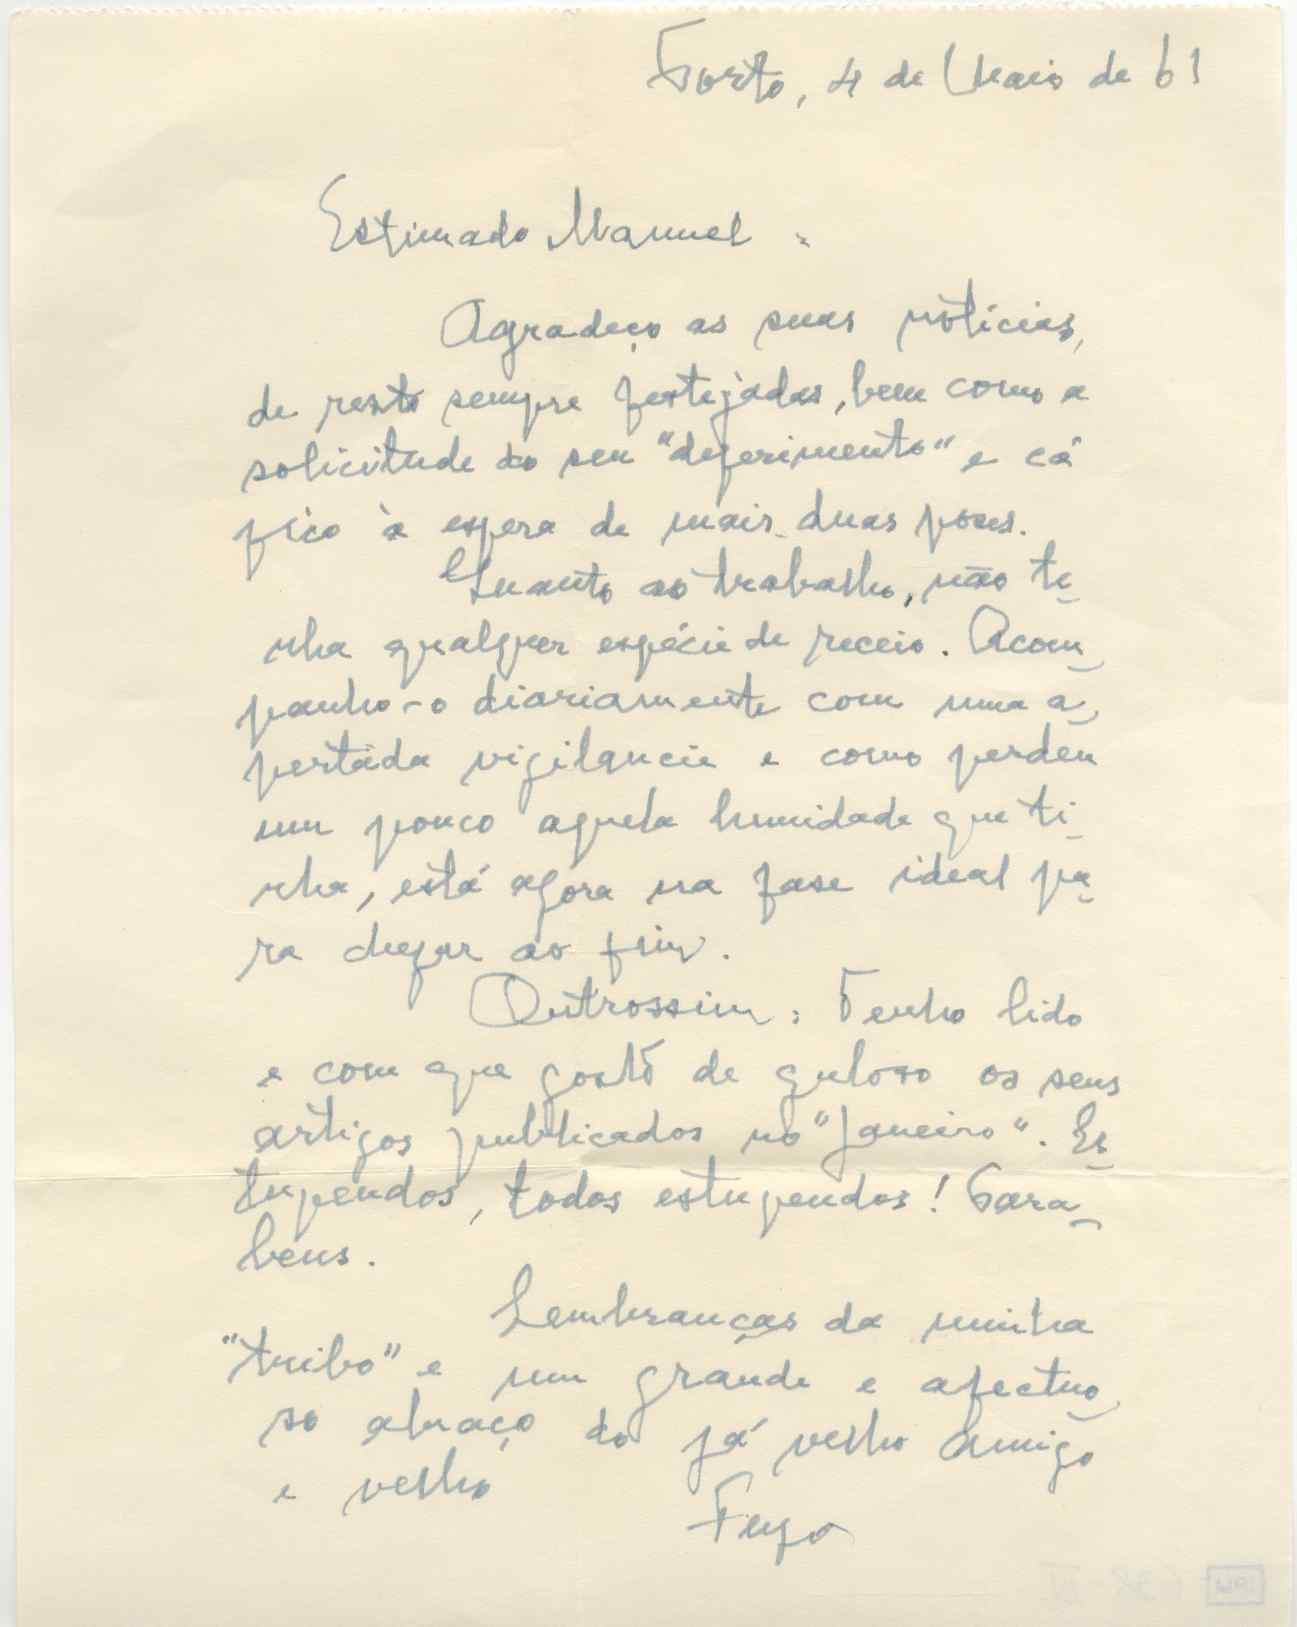 Porto, 4 de Maio de 61
Estimado Manuel:
Agradeço as suas notícias,
de resto sempre festejadas, bem como a
solicitude do seu "deferimento" e cá
fico à espera de mais duas poses.
Quanto ao trabalho, não te-
nha qualquer espécie de receio. Acom-
panho-o diariamente com uma a-
pertada vigilancia e como perdeu
um pouco aquela humidade que ti-
nha, está agora na fase ideal pa-
ra chegar ao fim.
Outrossim: Tenho lido
e com que gosto de guloso os seus
artigos publicados no "Janeiro". Es-
tupendos, todos estupendos! Para-
bens.
Lembranças da minha
"tribo" e um grande e afectuo-
so abraço do já velho amigo
e velho